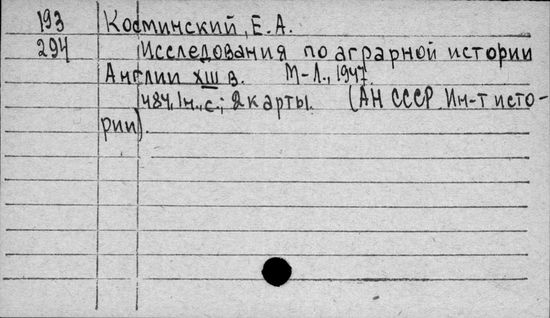 193 Косминский, Е.А.
294 Исследования по аграрной истории
Англии XIII в. М-Л., 1947.
484, 1н., с.; 2 карты. (АН СССР Ин-т исто-
рии).